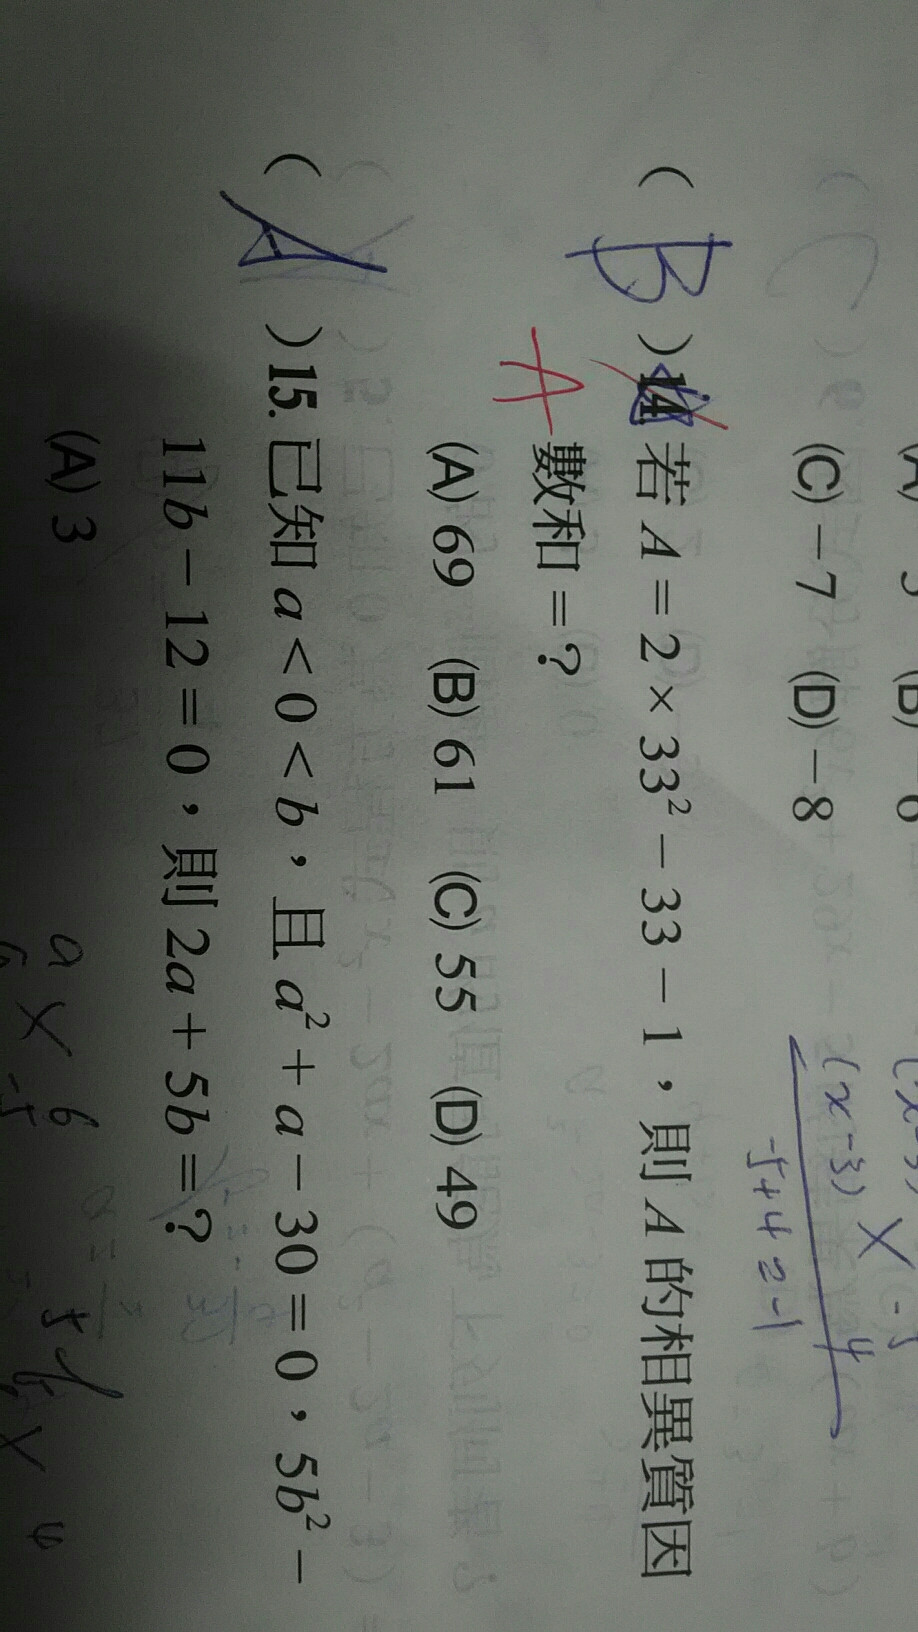 (C) －7 (D) －8
(x－3)
－5＋4＝－1
( B )14. 若 A＝2×33²－33－1，則 A 的相異質因
A 數和＝？
(A) 69 (B) 61 (C) 55 (D) 49
( A )15. 已知 a＜0＜b，且 a²＋a－30＝0，5b²－
11b－12＝0，則 2a＋5b＝？
(A) 3
a 6